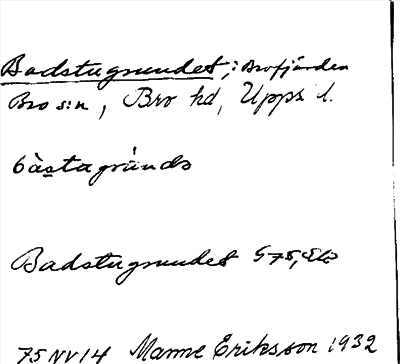 Badstugrundet, i Brofjärden
Bro s:n, Bro hd, Upps l.
bàstagrúndə
Badstugrundet
75 NV 14 Manne Eriksson 1932